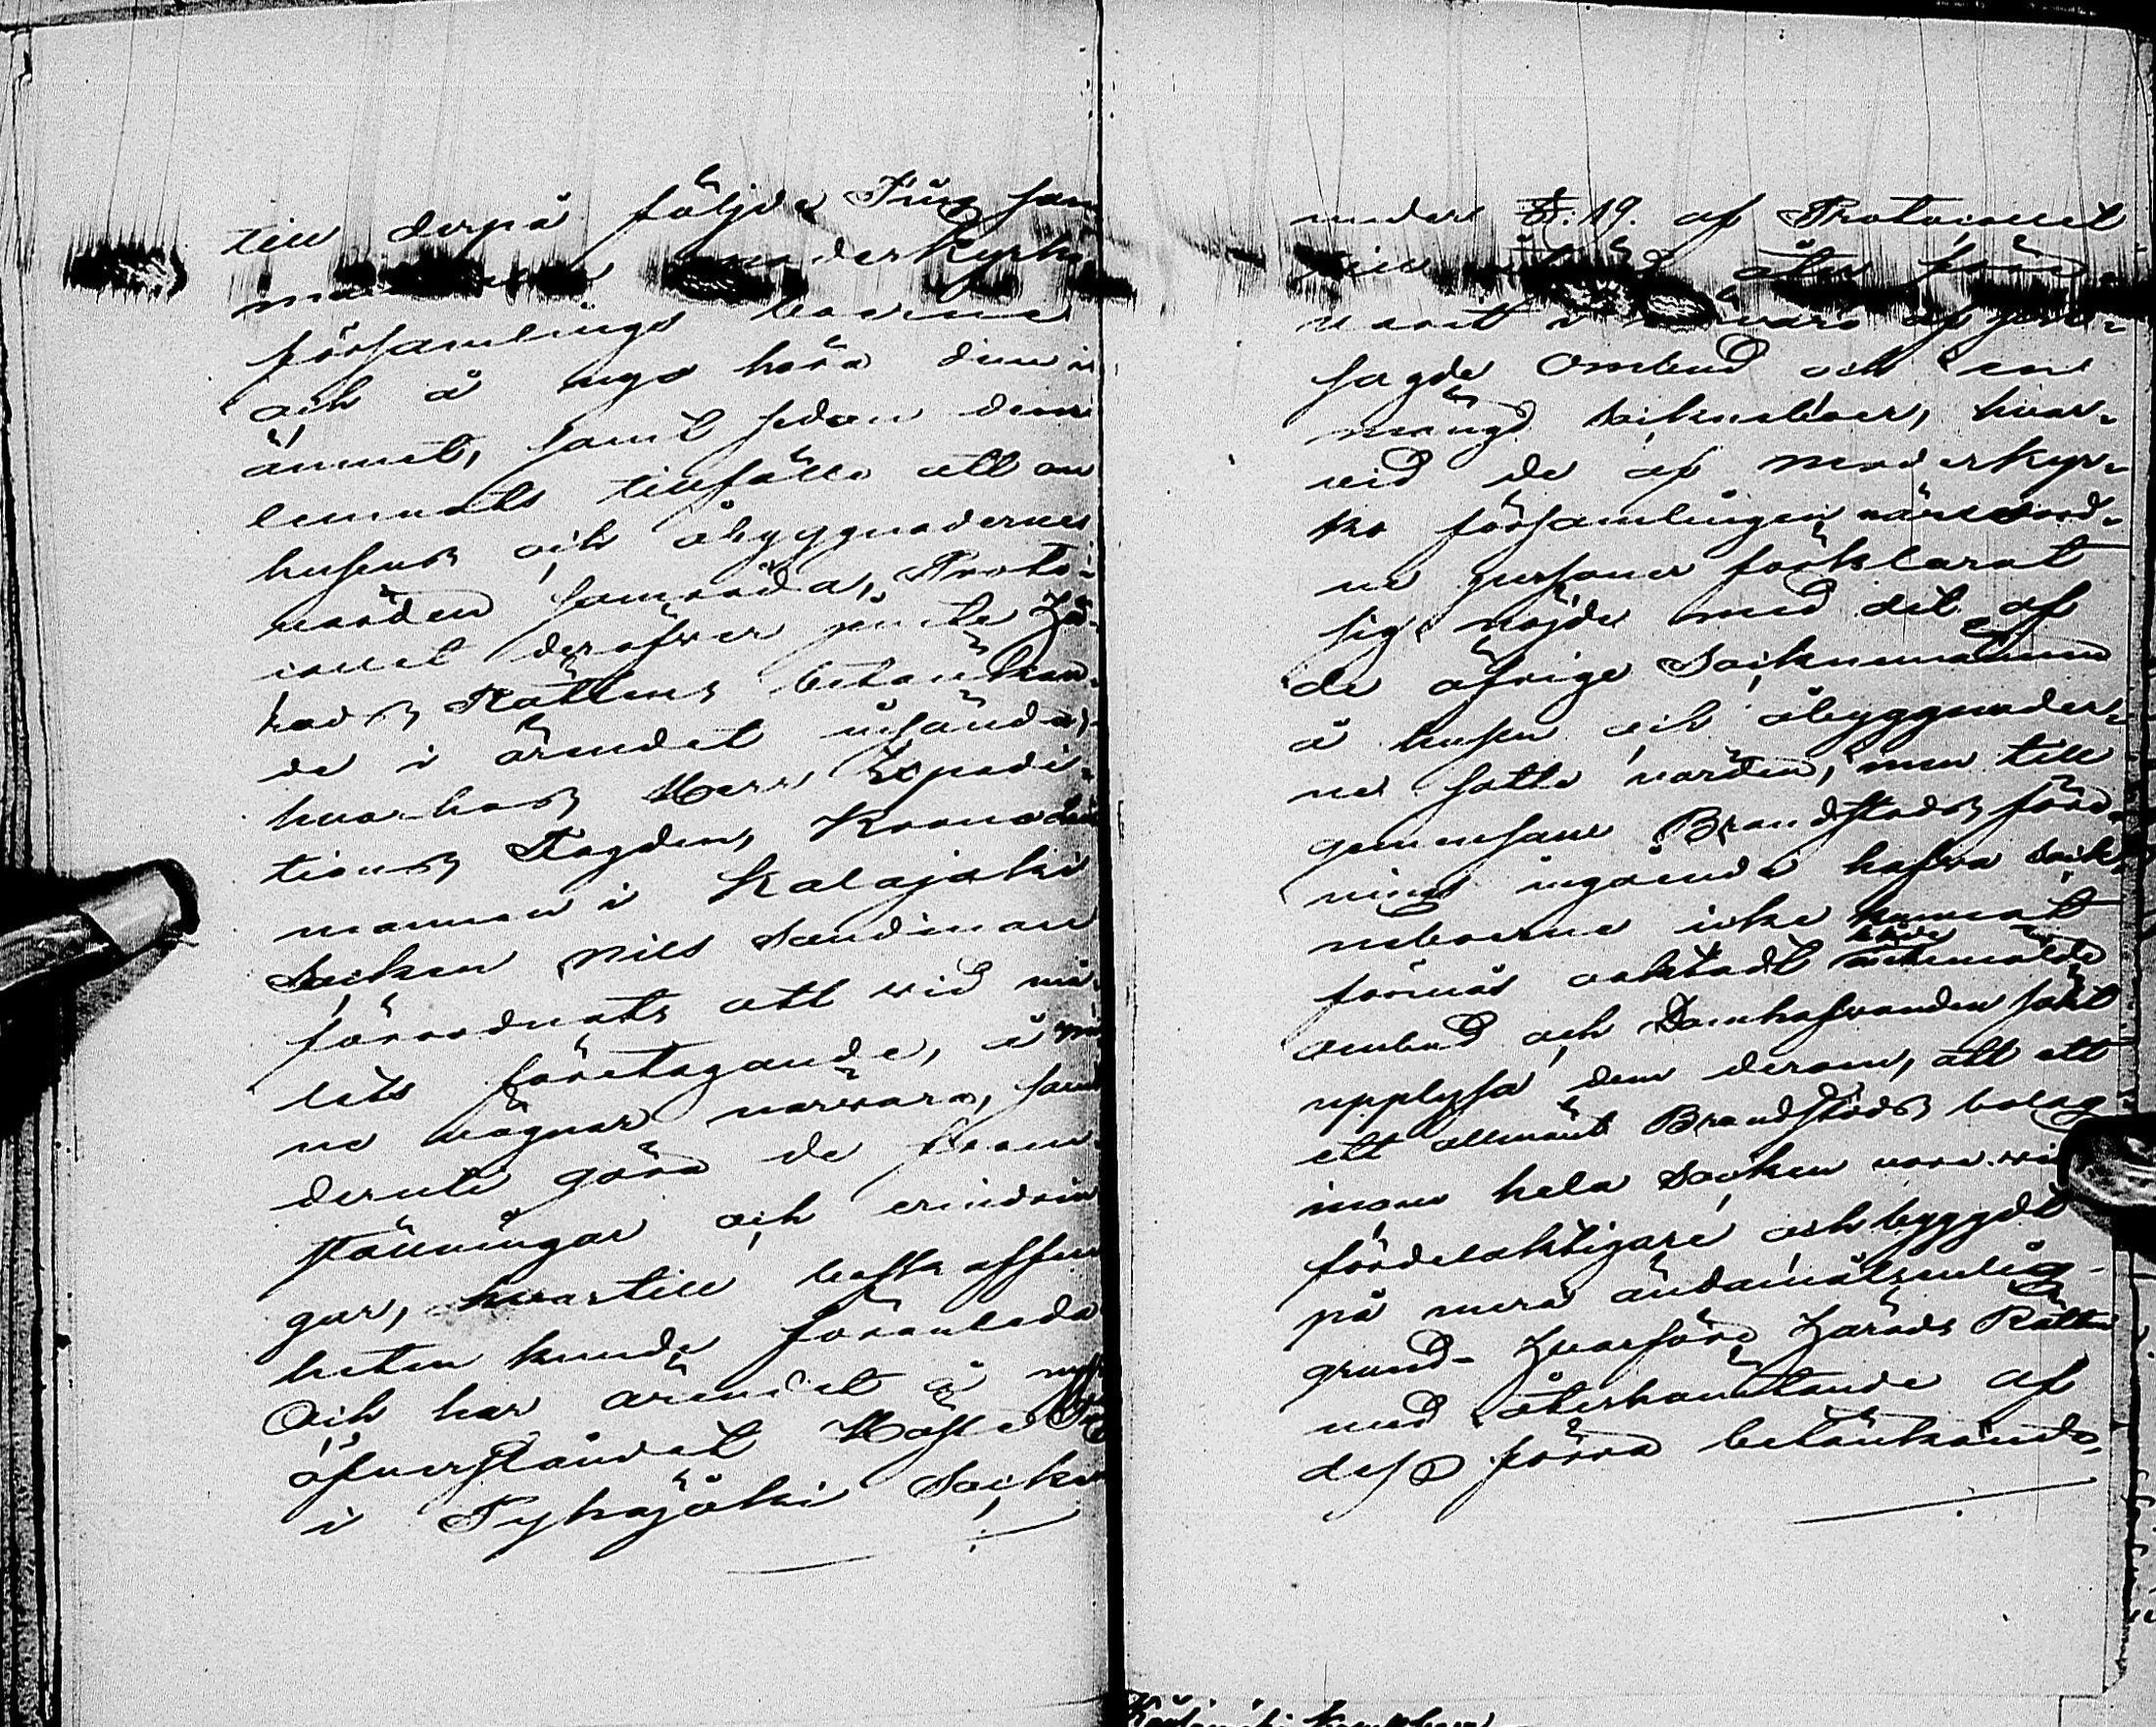 till derpå följde Ting sam
moderkyrko
församlings boerne
och å nyo höra dem i
ämnet, samt sedan dem
lemnats tillfälle att om
husens och åbyggnadernes
värden samråda, Proto-
collet deröfver jemte Hä-
rads Rättens betänkan-
de i ärendet insända,
hvarhos Herr Expedi-
tions Fogden, Kronolän
mannen i Kalajoki
Socken Nils Sandman
förordnats att wid må-
lets företagande, å mi
ne vägnar närvara, samt
deruti göra de fram
ställningar och erindrin
gar, hvartill beskaffen
heten kunde föranleda
Och har ärendet å nyst
öfverståndet Höste Ting
i Pyhäjoki Socken
under §. 19. af Protocollet
åter före-
varit i närvaro af före-
sagde Ombud och en
mängd Sockneboer, hvar-
vid de af moderkyr-
ko församlingen närvarand-
ne personer förklarat
sig nöjde med det af
de öfrige Socknemännen
å husen och åbyggnader-
ne satte värden, men till
gemensam Brandstods före-
nings ingående hafva Sock-
neboerne icke kunnat
förmås oaktadt både
ombud och Domhafvanden sökt
upplysa dem derom, att ett
ett allmänt Brandstods bolag
inom hela Socken vore vida
fördelaktigare och byggdt
på mera ändamålsenlig
grund. Hvarföre Härads Rätten
med återhemtande af
dess förra betänkande,